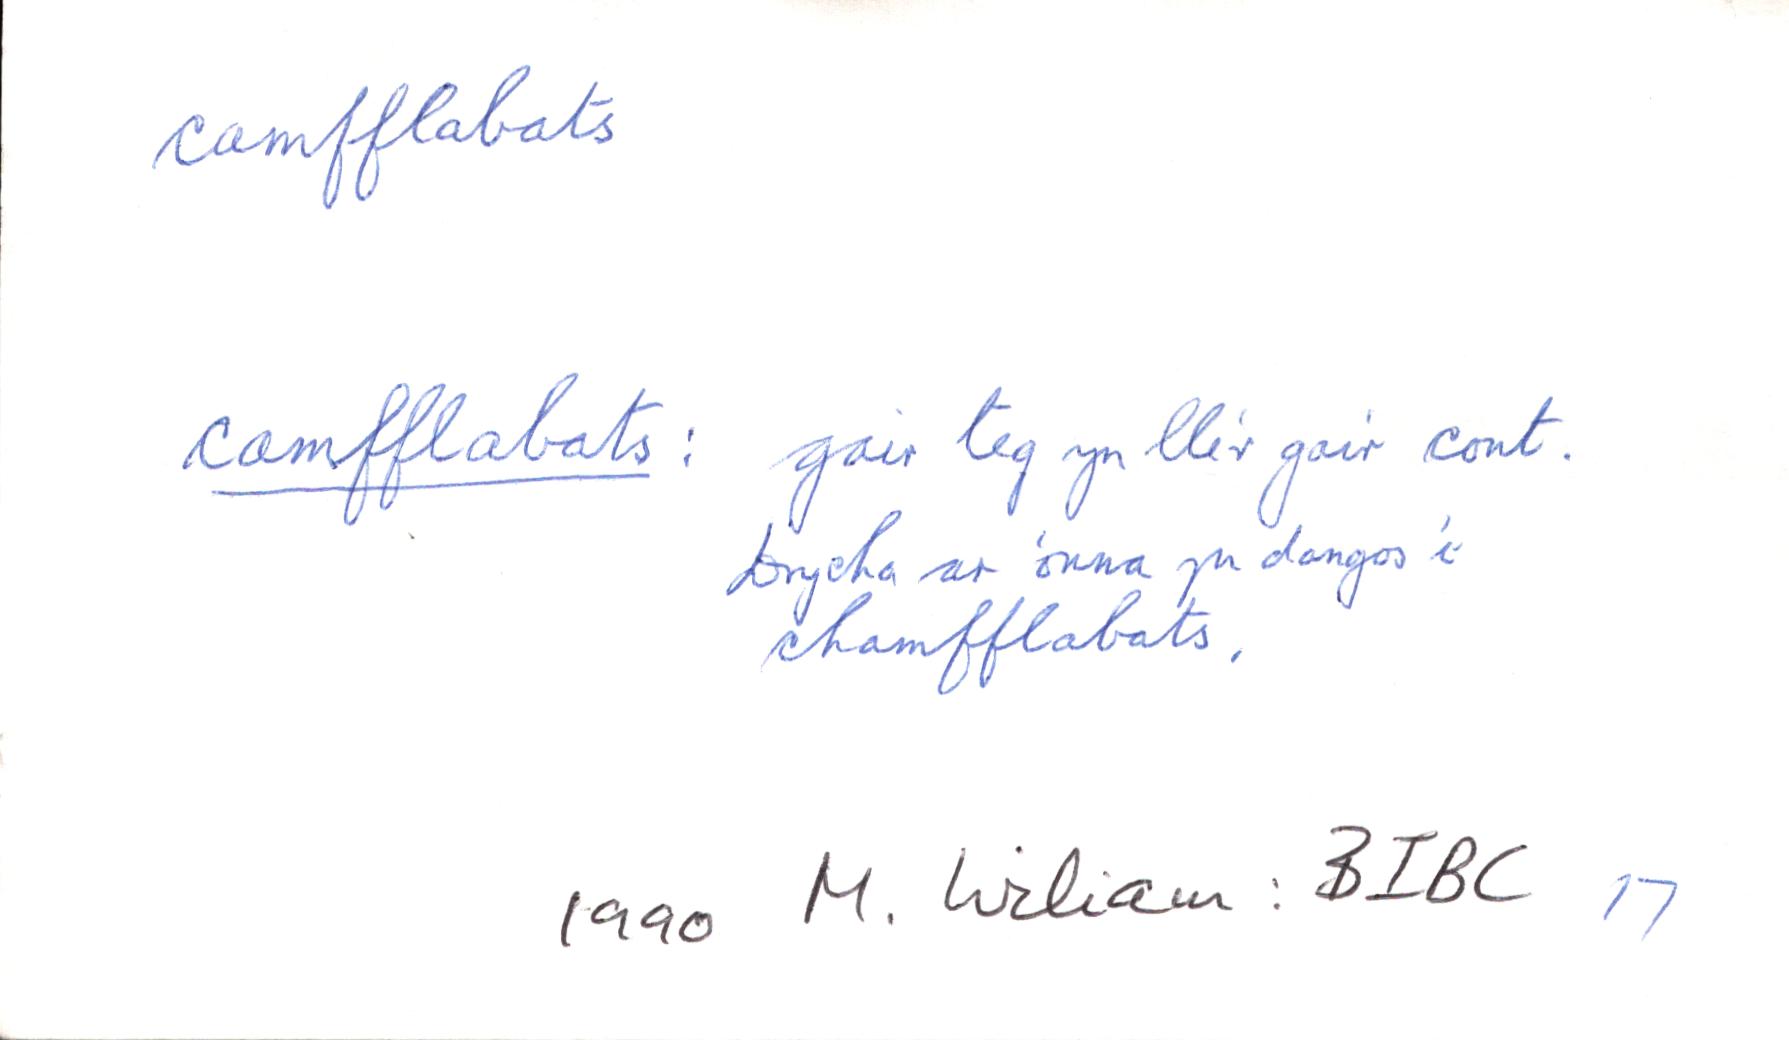 camfflabats
camfflabats: gair teg yn lle'r gair cont.
Drycha ar 'onna yn dangos 'i
chamfflabats.
1990 M. Wiliam: BIBC 17